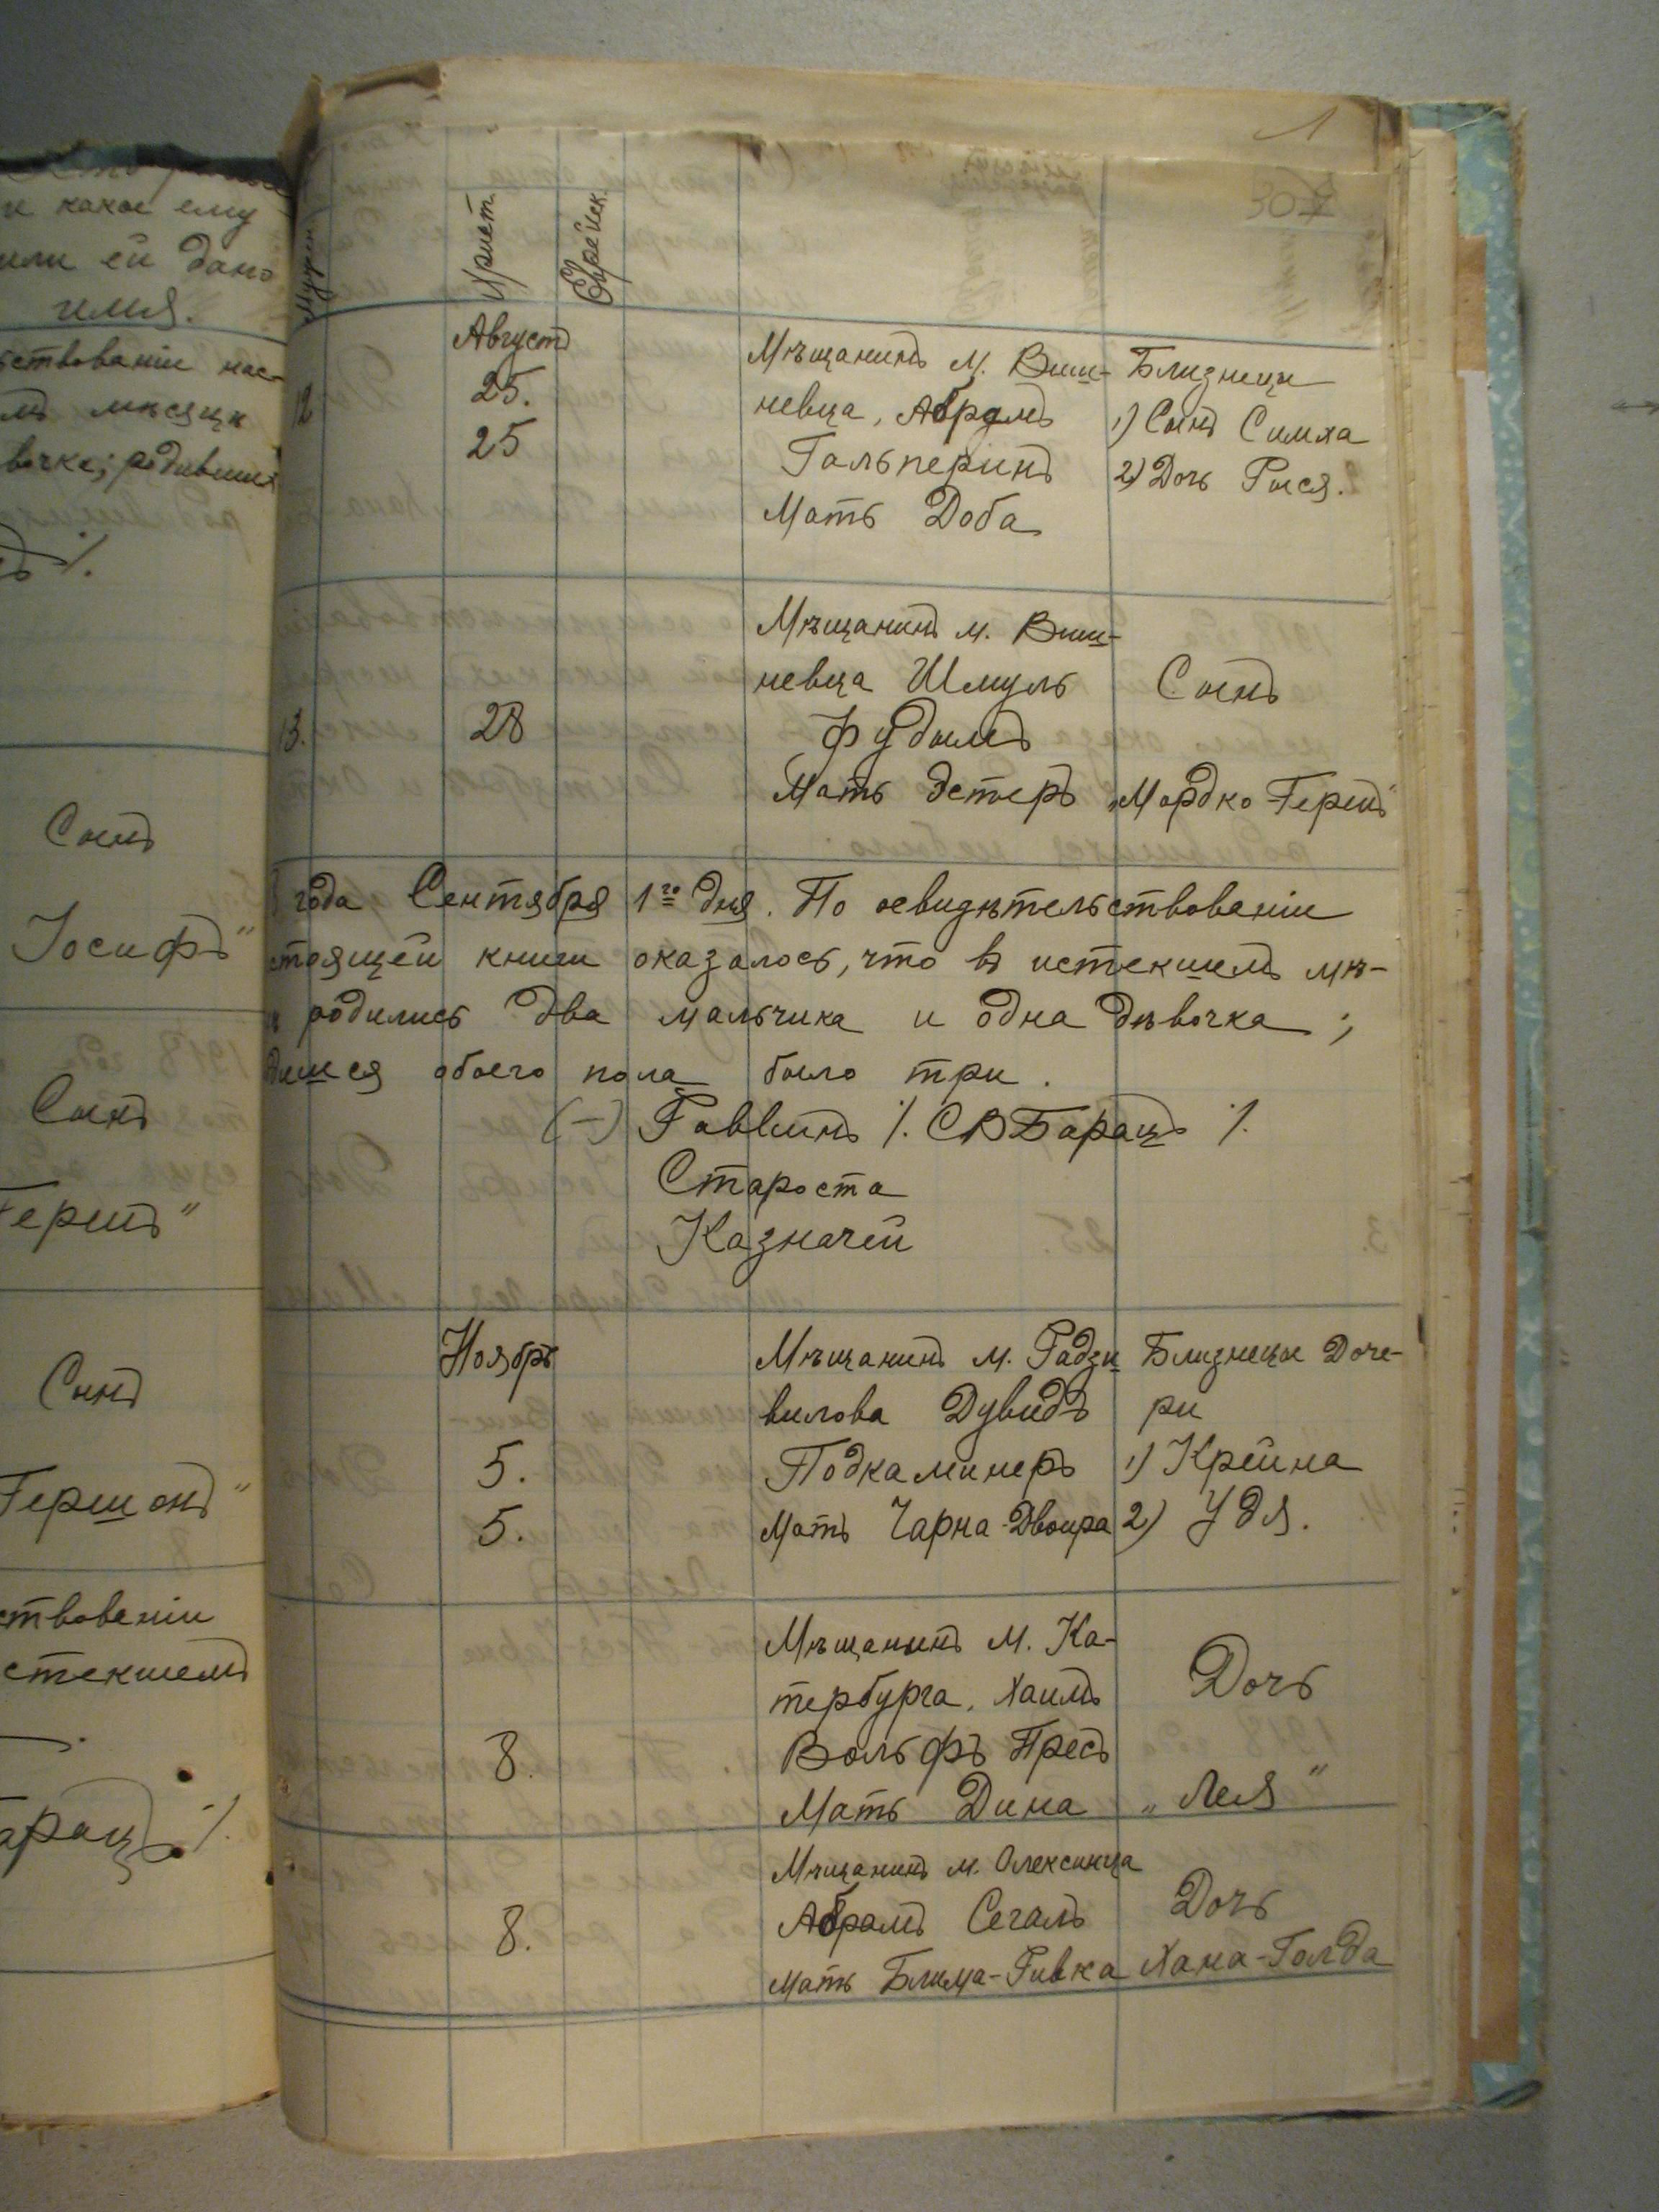 и какое ему
или ей дано
имя.
мъ мѣсяцѣ
Сынъ
Іосифъ"
Сынъ
Гершъ"
Сынъ
Гершонъ"
ствованіи
стекшемъ
1
307
Мужск.
Христ.
Еврейск.
Августъ
12
25.
25
Мѣщанинъ м. Виш-
невца, Абрамъ
Гальперинъ
Мать Доба
Близнецы
1) Сынъ Симха
2) Дочь Рися.
13.
28
Мѣщанинъ м. Виш-
невца Шмуль
Фудымъ
Мать Эстеръ
Сынъ
„Мордко-Гершъ"
года Сентября 1го дня. По освидѣтельствованіи
стоящей книги оказалось, что въ истекшемъ мѣ-
родились два мальчика и одна дѣвочка;
вшихся обоего пола было три.
(-) Раввинъ /. СВБарацъ /.
Староста
Казначей
Ноябрь
5.
5.
Мѣщанинъ м. Радзи
вилова Дувидъ
Подкаминеръ
Мать Чарна-Двойра
Близнецы Доче-
ри
1) Крейна
2) Удя.
8.
Мѣщанинъ м. Ка-
тербурга, Хаимъ
Вольфъ Пресъ
Мать Дина
Дочь
„Лея"
8.
Мѣщанинъ м. Олексинца
Абрамъ Сегалъ
Мать Блима-Ривка
Дочь
Хана-Голда